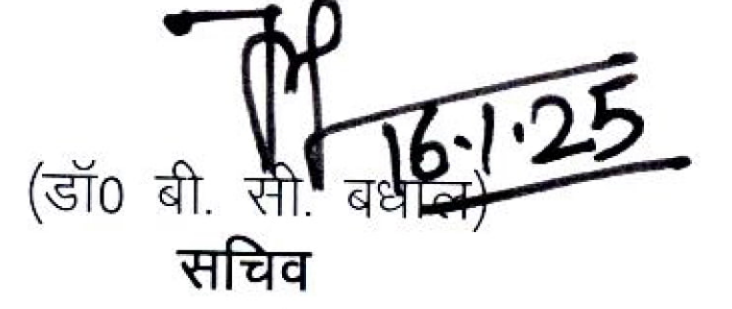 16.1.25
(डॉ0 बी. सी. बधाल)
सचिव